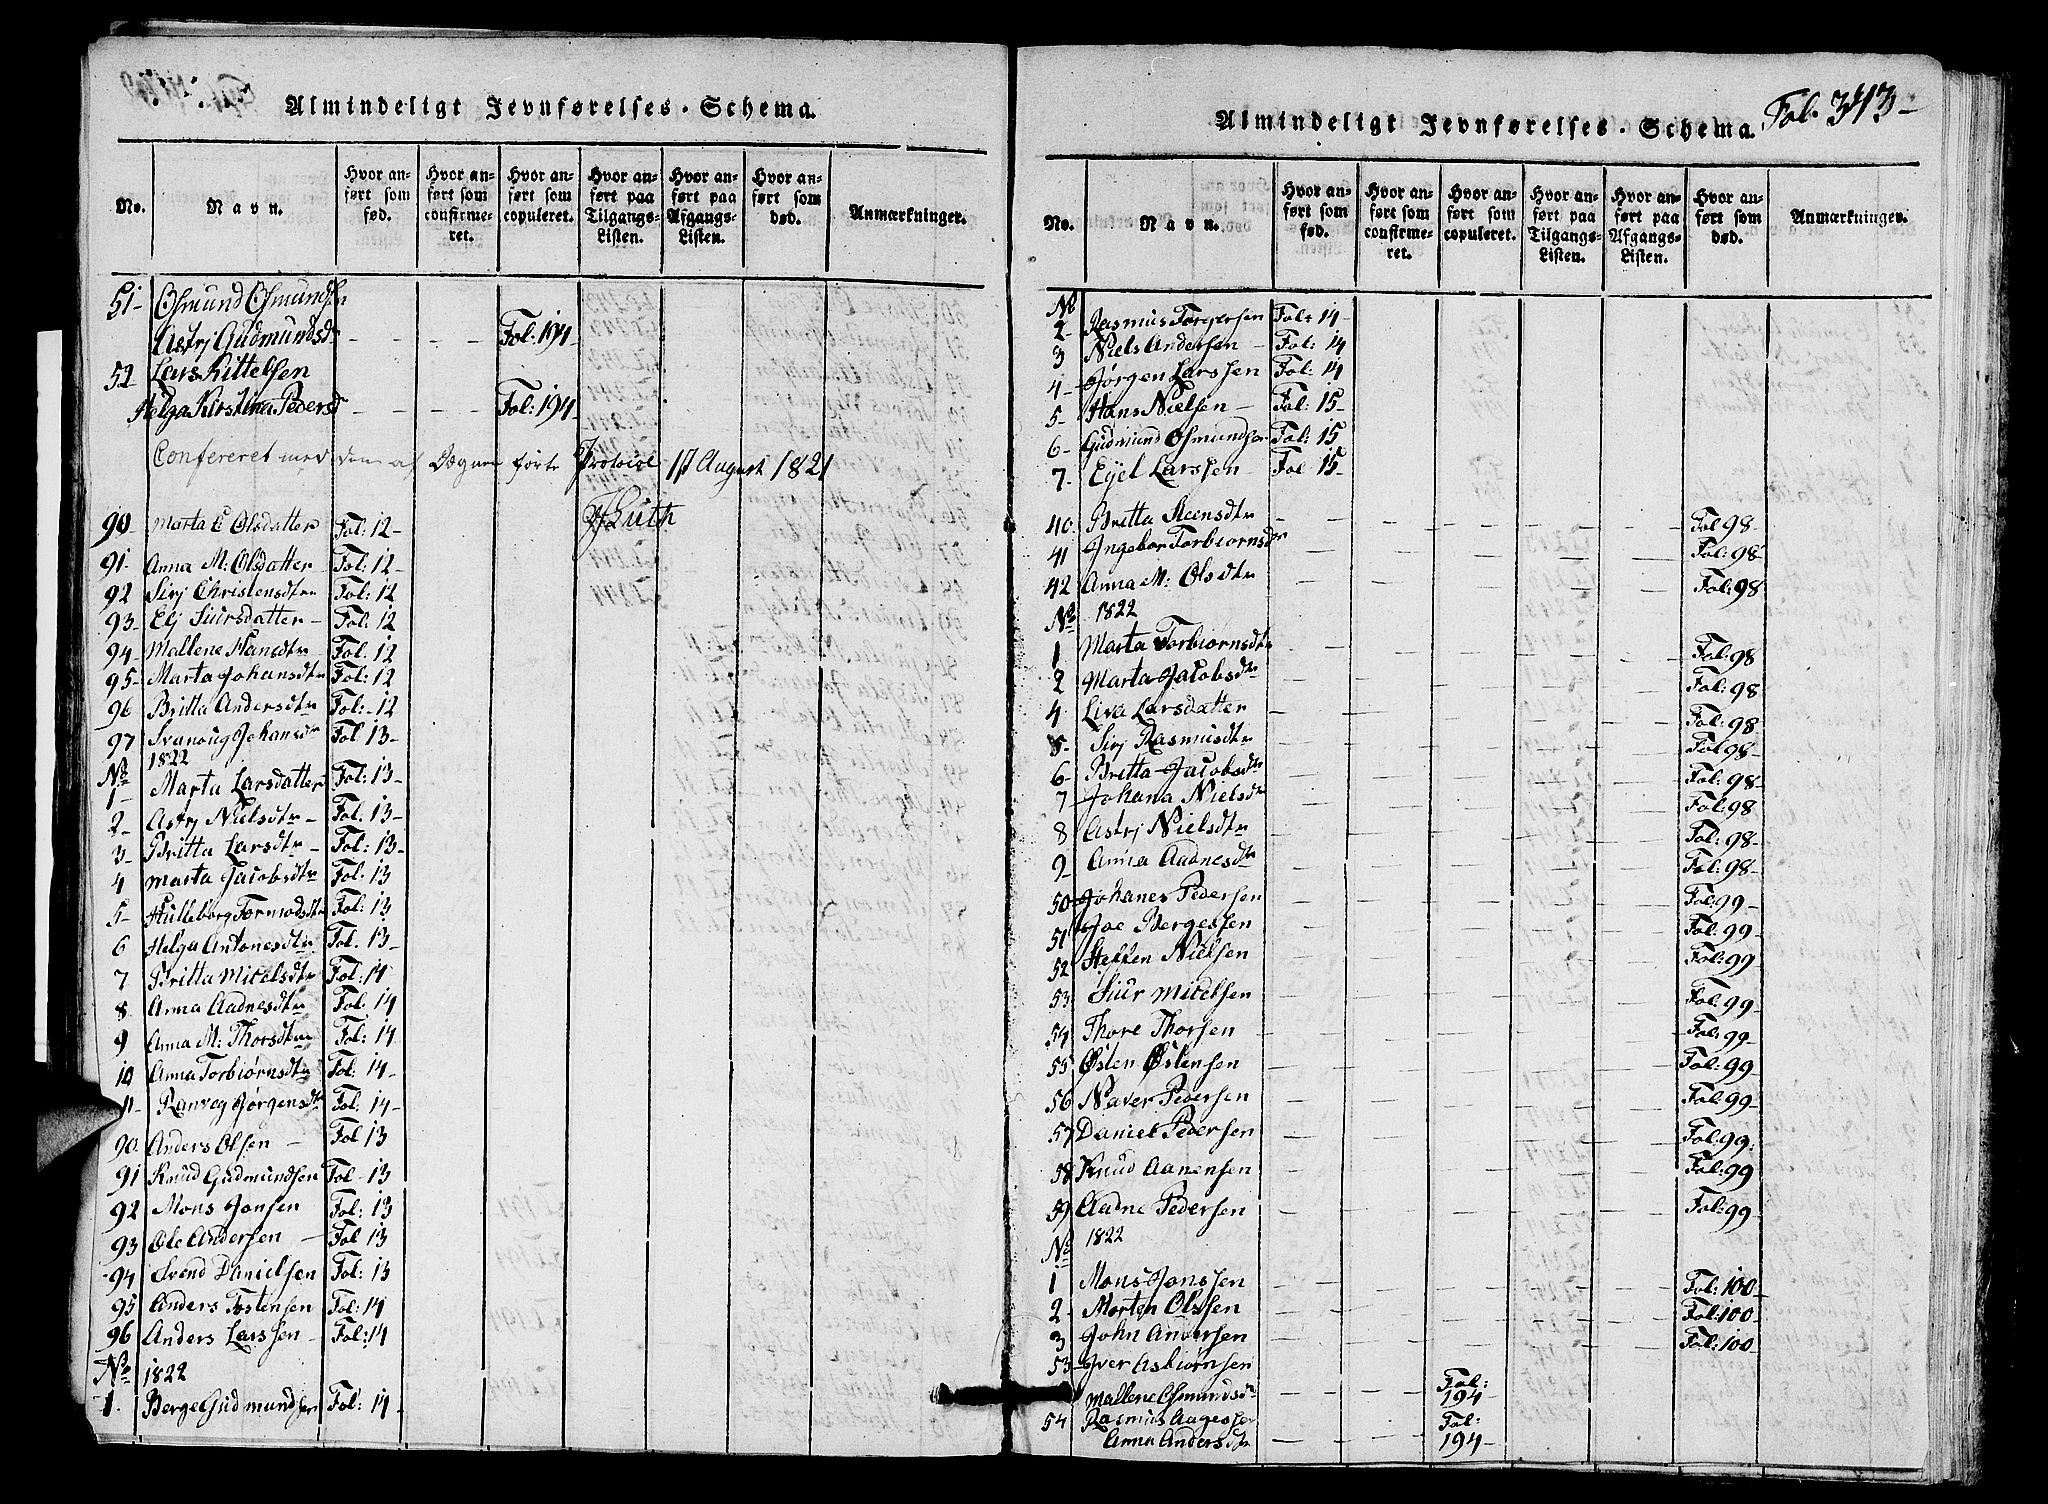 Almindeligt Jevnførelses-Schema.
No. Navn. Hvor anført som fød. Hvor anført som confirmeret. Hvor anført som copuleret. Hvor anført paa Tilgangs-Listen. Hvor anført paa Afgangs-Listen. Hvor anført som død. Anmærkninger.
51- Osmund Osmunds
Astrj Gudmundsd - - - - Fol: 194
52 Lars Kittelsen
Helga Kirstina Pedersd - - - - Fol: 194
Confereret med den af førte Protocol 17 August 1821
90 Marta C Olsdatter Fol: 12-
91- Anna M: Olsdatter Fol: 12-
92 Sirj Christensdtr Fol: 12
93- Elj Siursdatter- Fol: 12
94- Mallene Hansdtr Fol: 12
95- Marta Johansdtr Fol: 12
96 Britta Andersdtr Fol: 12
97 Svanoug Johansdr Fol 13-
No 1822
1- Marta Larsdatter Fol: 13-
2- Astrj Nielsdtr- Fol: 13-
3- Britta Larsdtr- Fol: 13-
4 Marta Jacobsdtr Fol: 13
5- Hulleborg Tormodsdtr Fol: 13
6 Helga Antonesdtr Fol. 13-
7 Britta Mikelsdtr Fol: 14
8 Anna Aadnesdtr Fol: 14
9 Anna M: Thorsdtr Fol: 14
10 Anna Torbiørnsdtr Fol: 14-
11- Ranveg Jørgensdtr Fol: 14-
90. Anders Olsen - Fol 13
91 Knud Gudmundsen Fol 13
92 Mons Jonsen Fol: 13
93 Ole Andersen - Fol 13
94 Svend Danielsen Fol: 13
95 Anders Tostensen Fol: 14
96 Anders Larssen- Fol: 14
No 1822
1. Berge Gudmundsen Fol: 14-
Fol. 343-
Almindeligt Jevnførelses-Schema.
No. Navn. Hvor anført som fød. Hvor anført som confirmeret. Hvor anført som copuleret. Hvor anført paa Tilgangs-Listen. Hvor anført paa Afgangs-Listen. Hvor anført som død. Anmærkninger.
No
2- Rasmus Torgersen Fol: 14-
3 Niels Andersen - Fol: 14
4- Jørgen Larssen Fol: 14
5- Hans Nielsen - Fol: 15-
6- Gudmund Osmundsen Fol: 15
7- Ejel Larssen - Fol 15-
40. Britta Steensdtr - - - - - Fol 98-
41 Ingebor Torbiornsdr - - - - - Fol: 98-
42 Anna M: Olsdtr - - - - - Fol: 98
No 1822
1 Marta Torbiørnsdtr - - - - - Fol: 98
2 Marta Jacobsdtr - - - - - Fol: 98
4. Liva Larsdatter - - - - - Fol: 98
5- Sirj Rasmusdtr - - - - - Fol 98-
6- Britta Jacobsdtr - - - - - Fol: 98-
7 Johana Nielsdtr - - - - - Fol: 98
8 Astrj Nielsdtr - - - - - Fol: 98-
9- Anna Aadnesdtr - - - - - Fol: 98-
50 Johanes Pedersen - - - - - Fol: 99-
51 Joe Bergessen - - - - - Fol: 99-
52 Steffen Nielsen - - - - - Fol: 99
53 Siur Mikelsen - - - - - Fol: 99
54 Thore Thorsen - - - - - Fol: 99
55 Østen Østensen - - - - - Fol: 99
56 Naver Pedersen - - - - - Fol: 99-
57 Daniel Pedersen - - - - - Fol: 99.
58 Knud Aanensen - - - - - Fol: 99
59 Aadne Pedersen - - - - - Fol: 99
No 1822
1 Mons Jonssen - - - - - Fol: 100
2- Morten Olssen - - - - - Fol: 100
3 John Andersen - - - - - Fol: 100
53- Iver Asbiørnsen
Mallene Osmundsdr - - Fol: 194 - -
54 Rasmus Aagessen
Anna Andersdtr - - Fol: 194 - -